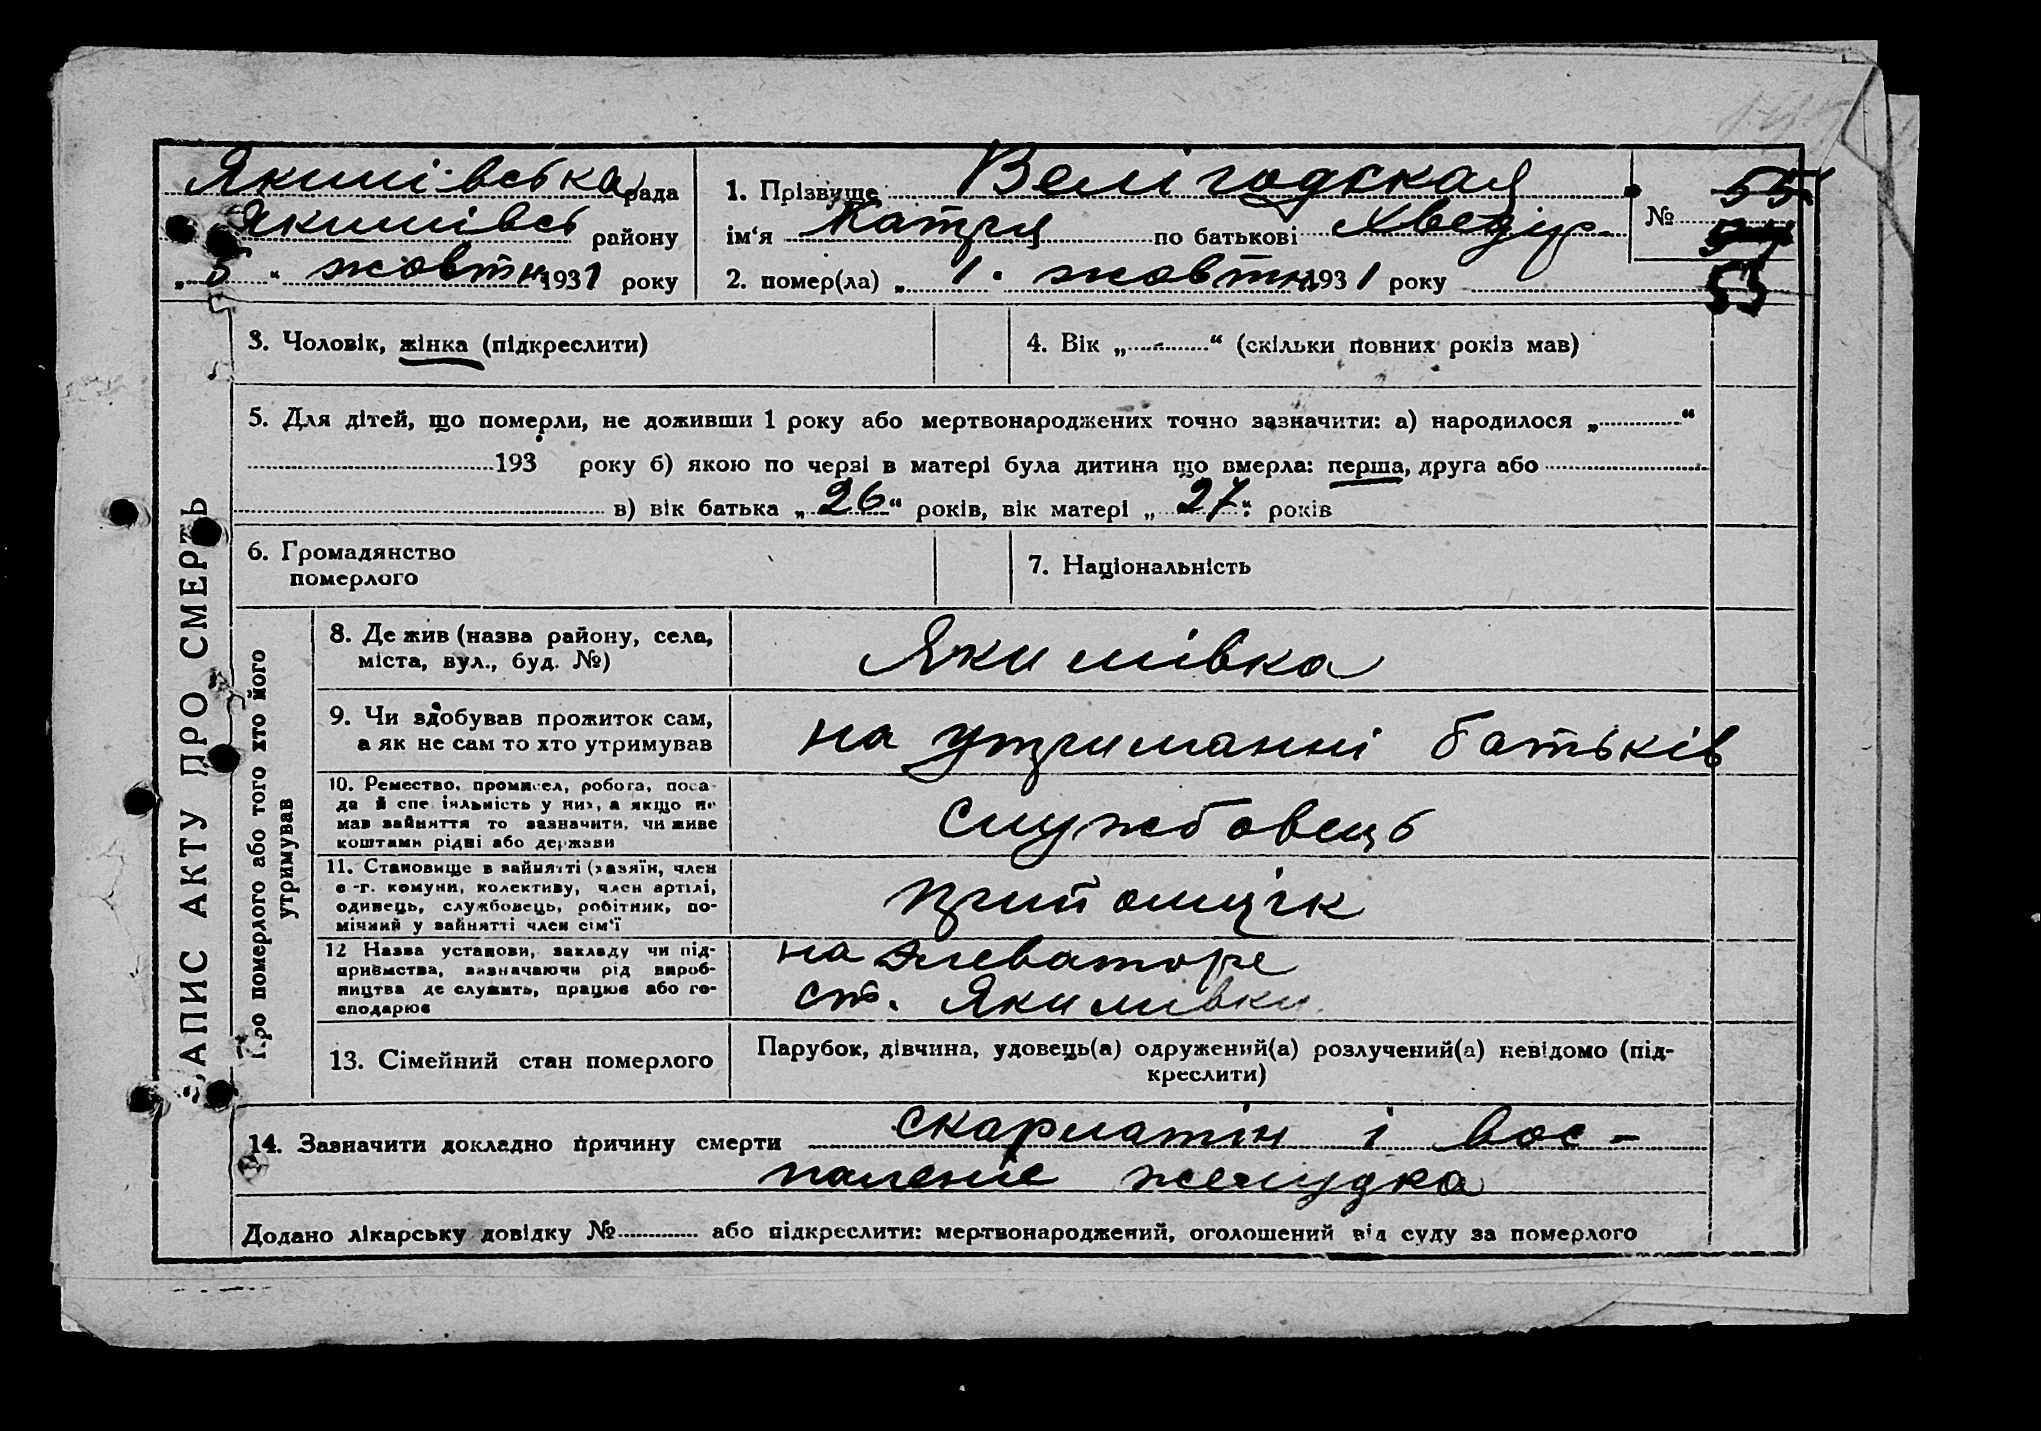 Якимівська рада
Якимівсь району
„ 5 “ жовтня 1931 року
1. Прізвище Велігодская
ім‘я Катря по батькові Хведір-
2. помер(ла) „ 1. жовтня 1931 року
№ 55
53
3. Чоловік, жінка (підкреслити)
4. Вік „ “ (скільки повних років мав)
5. Для дітей, що померли, не доживши 1 року або мертвонароджених точно зазначити: а) народилося „ “
193 року б) якою по черзі в матері була дитина що вмерла: перша, друга або
в) вік батька „ 26 “ років, вік матері „ 27 “ років
6. Громадянство
померлого
7. Національність
ЗАПИС АКТУ ПРО СМЕРТЬ
Про померлого або того хто його
утримував
8. Де жив (назва району, села,
міста, вул., буд. №)
Якимівка
9. Чи здобував прожиток сам,
а як не сам то хто утримував
на утриманні батьків
10. Ремество, промисел, робота, поса-
да й спеціяльність у них, а якщо не
мав зайняття то зазначити, чи живе
коштами рідні або держави
службовець
11. Становище в зайнятті (хазяїн, член
с.-г. комуни, колективу, член артілі,
одинець, службовець, робітник, по-
мічний у зайнятті член сім‘ї
12 Назва установи, закладу чи під-
приємства, визначаючи рід вироб-
ництва де служить, працює або го-
сподарює
на элеваторе
ст. Якимівки
13. Сімейний стан померлого
Парубок, дівчина, удовець(а) одружений(а) розлучений(а) невідомо (під-
креслити)
14. Зазначити докладно причину смерти скарлатін і вос-
паленіе желудка
Додано лікарську довідку № або підкреслити: мертвонароджений, оголошений від суду за померлого